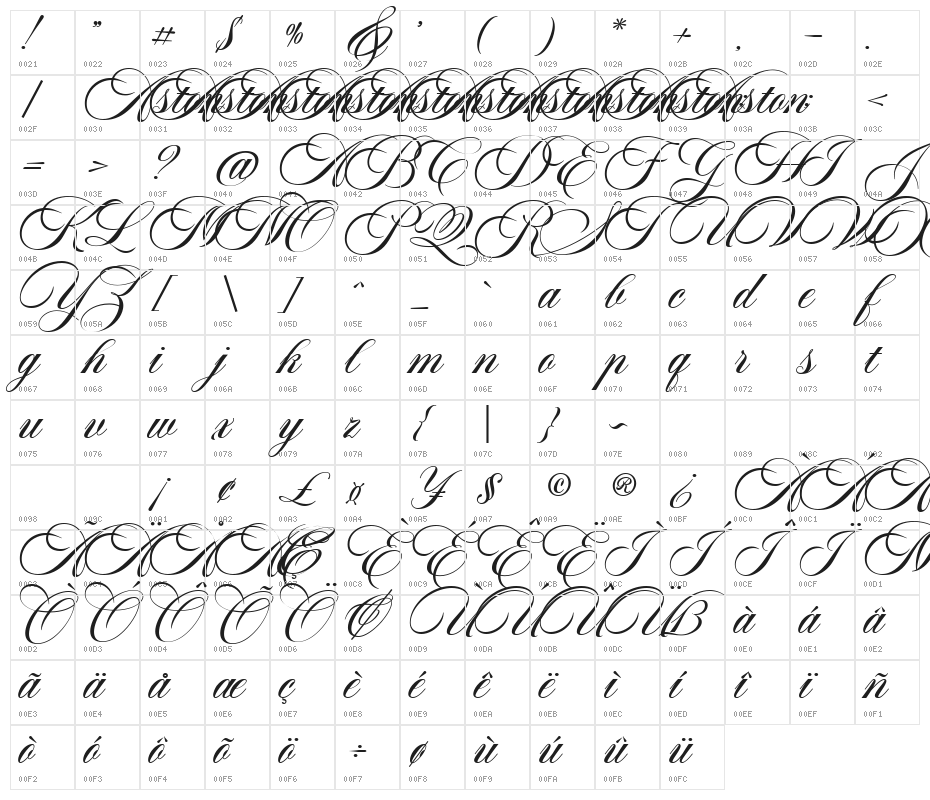 ! " # $ % & ' ( ) * + , - .
0021 0022 0023 0024 0025 0026 0027 0028 0029 002A 002B 002C 002D 002E
/ Aston Aston Aston Aston Aston Aston Aston Aston Aston Aston : ; <
002F 0030 0031 0032 0033 0034 0035 0036 0037 0038 0039 003A 003B 003C
= > ? @ A B C D E F G H I J
003D 003E 003F 0040 0041 0042 0043 0044 0045 0046 0047 0048 0049 004A
K L M N O P Q R S T U V W X
004B 004C 004D 004E 004F 0050 0051 0052 0053 0054 0055 0056 0057 0058
Y Z [ \ ] ^ _ ` a b c d e f
0059 005A 005B 005C 005D 005E 005F 0060 0061 0062 0063 0064 0065 0066
g h i j k l m n o p q r s t
0067 0068 0069 006A 006B 006C 006D 006E 006F 0070 0071 0072 0073 0074
u v w x y z { | } ~
0075 0076 0077 0078 0079 007A 007B 007C 007D 007E 0080 0089 008C 0092
¡ ¢ £ ¤ ¥ § © ® ¿ À Á Â
0098 009C 00A1 00A2 00A3 00A4 00A5 00A7 00A9 00AE 00BF 00C0 00C1 00C2
Ã Ä Å Æ Ç È É Ê Ë Ì Í Î Ï Ñ
00C3 00C4 00C5 00C6 00C7 00C8 00C9 00CA 00CB 00CC 00CD 00CE 00CF 00D1
Ò Ó Ô Õ Ö Ø Ù Ú Û Ü ß à á â
00D2 00D3 00D4 00D5 00D6 00D8 00D9 00DA 00DB 00DC 00DF 00E0 00E1 00E2
ã ä å æ ç è é ê ë ì í î ï ñ
00E3 00E4 00E5 00E6 00E7 00E8 00E9 00EA 00EB 00EC 00ED 00EE 00EF 00F1
ò ó ô õ ö ÷ ø ù ú û ü
00F2 00F3 00F4 00F5 00F6 00F7 00F8 00F9 00FA 00FB 00FC